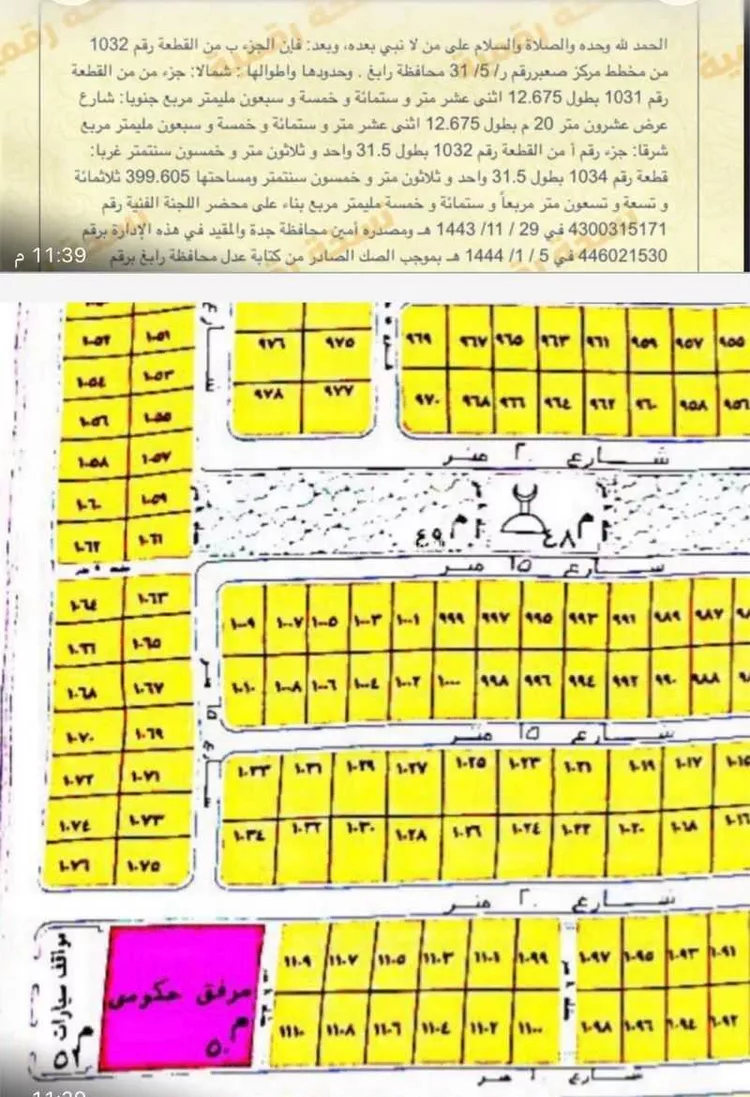 الحمد لله وحده والصلاة والسلام على من لا نبي بعده، وبعد: فإن الجزء ب من القطعة رقم 1032
من مخطط مركز صعبررقم ر/ 5/ 31 محافظة رابغ . وحدودها واطوالها : شمالا: جزء من من القطعة
رقم 1031 بطول 12.675 اثنى عشر متر و ستمائة و خمسة و سبعون مليمتر مربع جنوبا: شارع
عرض عشرون متر 20 م بطول 12.675 اثنى عشر متر و ستمائة و خمسة و سبعون مليمتر مربع
شرقا: جزء رقم أ من القطعة رقم 1032 بطول 31.5 واحد و ثلاثون متر و خمسون سنتمتر غربا:
قطعة رقم 1034 بطول 31.5 واحد و ثلاثون متر و خمسون سنتمتر ومساحتها 399.605 ثلاثمائة
و تسعة و تسعون متر مربعاً و ستمائة و خمسة مليمتر مربع بناء على محضر اللجنة الفنية رقم
4300315171 في 29 / 11 / 1443 هـ ومصدره أمين محافظة جدة والمقيد في هذه الإدارة برقم
446021530 في 5 / 1 / 1444 هـ بموجب الصك الصادر من كتابة عدل محافظة رابغ برقم
11:39 م
١٠٥٢ ١٠٥١
١٠٥٤ ١٠٥٣
١٠٥٦ ١٠٥٥
١٠٥٨ ١٠٥٧
١٠٦٠ ١٠٥٩
١٠٦٢ ١٠٦١
٩٧٦ ٩٧٥
٩٧٨ ٩٧٧
٩٦٩ ٩٦٧ ٩٦٥ ٩٦٣ ٩٦١ ٩٥٩ ٩٥٧ ٩٥٥
٩٧٠ ٩٦٨ ٩٦٦ ٩٦٤ ٩٦٢ ٩٦٠ ٩٥٨ ٩٥٦
شارع ٢٠ متر
م ٤٨
م ٤٩
شارع ١٥ متر
١٠٦٤ ١٠٦٣
١٠٦٦ ١٠٦٥
١٠٦٨ ١٠٦٧
١٠٧٠ ١٠٦٩
١٠٧٢ ١٠٧١
١٠٧٤ ١٠٧٣
١٠٧٦ ١٠٧٥
شارع ١٥ متر
١٠٠٩ ١٠٠٧ ١٠٠٥ ١٠٠٣ ١٠٠١ ٩٩٩ ٩٩٧ ٩٩٥ ٩٩٣ ٩٩١ ٩٨٩ ٩٨٧
١٠١٠ ١٠٠٨ ١٠٠٦ ١٠٠٤ ١٠٠٢ ١٠٠٠ ٩٩٨ ٩٩٦ ٩٩٤ ٩٩٢ ٩٩٠ ٩٨٨
شارع ١٥ متر
١٠٣٣ ١٠٣١ ١٠٢٩ ١٠٢٧ ١٠٢٥ ١٠٢٣ ١٠٢١ ١٠١٩ ١٠١٧ ١٠١٥
١٠٣٤ ١٠٣٢ ١٠٣٠ ١٠٢٨ ١٠٢٦ ١٠٢٤ ١٠٢٢ ١٠٢٠ ١٠١٨ ١٠١٦
شارع ٢٠ متر
مواقف سيارات
م ٥
مرفق حكومى
م ٥٠
١١٠٩ ١١٠٧ ١١٠٥ ١١٠٣ ١١٠١ ١٠٩٩
١١١٠ ١١٠٨ ١١٠٦ ١١٠٤ ١١٠٢ ١١٠٠
١٠٩٧ ١٠٩٥ ١٠٩٣ ١٠٩١
١٠٩٨ ١٠٩٦ ١٠٩٤ ١٠٩٢